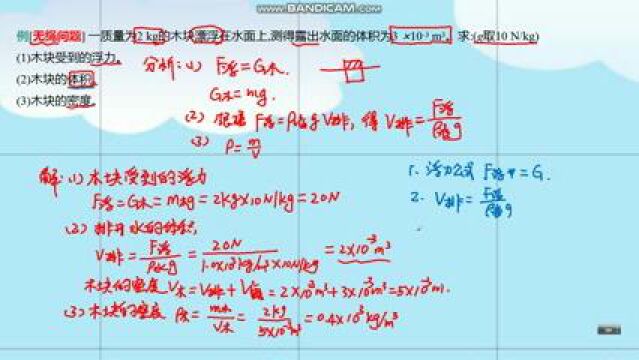 WWW.BANDICAM.COM
例[无绳问题] 一质量为2 kg的木块漂浮在水面上,测得露出水面的体积为3 ×10⁻³ m³。求:(g取10 N/kg)
(1)木块受到的浮力。
(2)木块的体积。
(3)木块的密度。
分析:(1) F浮=G木.
G木=mg.
(2) 根据 F浮=ρ液g V排, 得 V排=F浮/ρ液g
(3) ρ=m/V
解:(1)木块受到的浮力
F浮=G木=m木g=2kg×10N/kg=20N
(2)排开水的体积
V排=F浮/ρ水g=20N/1.0×10³kg/m³×10N/kg=2×10⁻³m³
木块的密度 V木=V排+V露=2×10⁻³m³+3×10⁻³m³=5×10⁻³m³.
(3)木块的密度 ρ木=m木/V木=2kg/5×10⁻³m³=0.4×10³kg/m³
1. 浮力公式 F浮=G.
2. V排=F浮/ρ液g